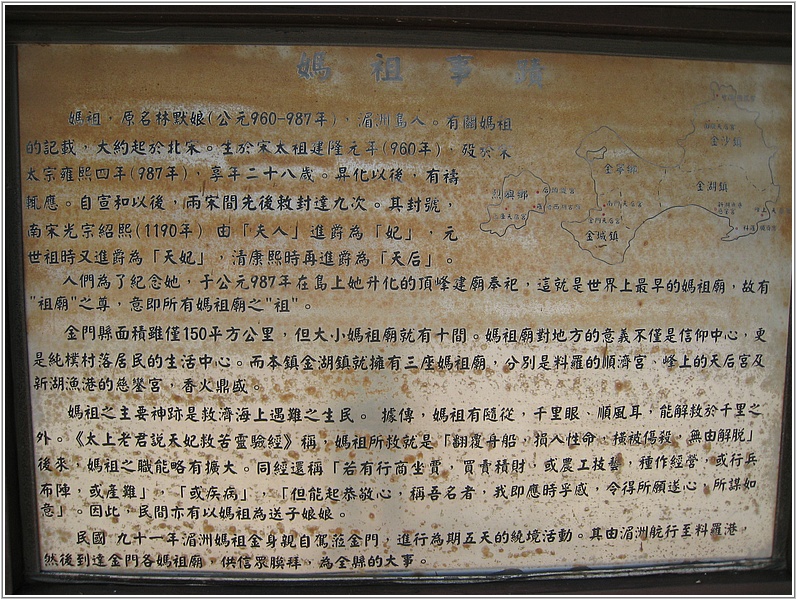 媽祖事蹟
媽祖，原名林默娘(公元960-987年)，湄洲島人。有關媽祖
的記載，大約起於北宋。生於宋太祖建隆元年(960年)，歿於宋
太宗雍熙四年(987年)，享年二十八歲。昇化以後，有禱
輒應。自宣和以後，兩宋間先後敕封達九次。其封號，
南宋光宗紹熙(1190年) 由「夫人」進爵為「妃」，元
世祖時又進爵為「天妃」，清康熙時再進爵為「天后」。
人們為了紀念她，于公元987年在島上她升化的頂峰建廟奉祀，這就是世界上最早的媽祖廟，故有
"祖廟"之尊，意即所有媽祖廟之"祖"。
金門縣面積雖僅150平方公里，但大小媽祖廟就有十間。媽祖廟對地方的意義不僅是信仰中心，更
是純樸村落居民的生活中心。而本鎮金湖鎮就擁有三座媽祖廟，分別是料羅的順濟宮、峰上的天后宮及
新湖漁港的慈鑾宮，香火鼎盛。
媽祖之主要神跡是救濟海上遇難之生民。 據傳，媽祖有隨從，千里眼、順風耳，能解救於千里之
外。《太上老君說天妃救苦靈驗經》稱，媽祖所救就是「翻覆舟船，損人性命，橫被傷殺，無由解脫」
後來，媽祖之職能略有擴大。同經還稱「若有行商坐賈，買賣積財，或農工技藝，種作經營，或行兵
布陣，或產難」，「或疾病」，「但能起恭敬心，稱吾名者，我即應時孚感，令得所願遂心，所謀如
意」。因此，民間亦有以媽祖為送子娘娘。
民國 九十一年湄洲媽祖金身親自駕蒞金門，進行為期五天的繞境活動。其由湄洲航行至料羅港，
然後到達金門各媽祖廟，供信眾膜拜，為全縣的大事。
金沙鎮
金寧鄉
金湖鎮
烈嶼鄉
金城鎮